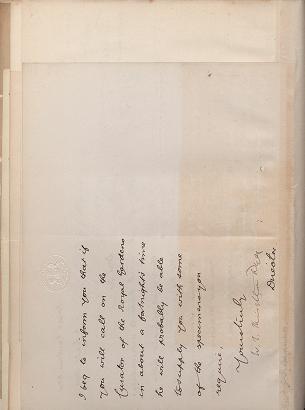 I beg to inform you that if
you will call on the
Curator of the Royal Gardens
in about a fortnight's time
he will probably be able
to supply you with some
of the specimens you
require.
Yours truly
W. T. Thiselton Dyer
Director